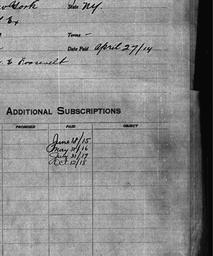 York State NY.
Ex
Terms -
Date Paid April 27/14
E Roosevelt
ADDITIONAL SUBSCRIPTIONS
PROMISED PAID OBJECT
June 18/15
May 31/16
July 31/17
Oct 12/18